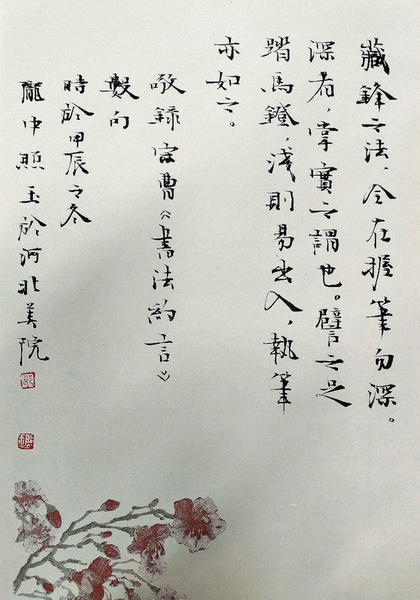 藏鋒之法、全在握筆勿深。
深者，掌實之謂也。譬之足
踏馬鐙，淺則易出入，執筆
亦如之。
敬錄宋曹《書法約言》
數句
時於甲辰之冬
龐中 玉於河北美院